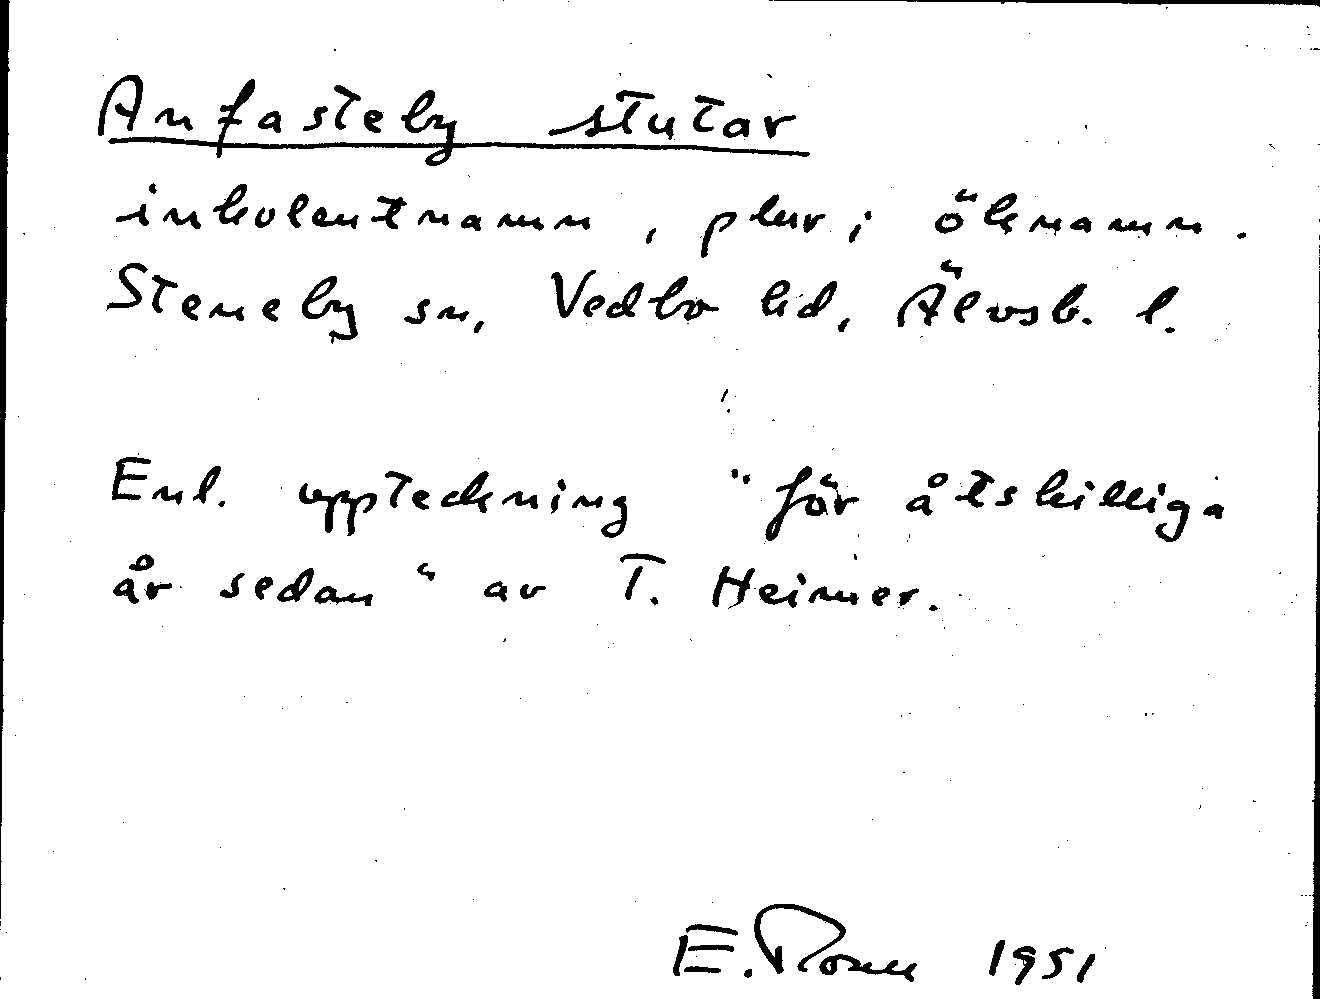 Anfasteby stutar
inkolentnamn, plur; öknamn.
Steneby sn, Vedbo hd, Älvsb. l.
Enl. uppteckning "för åtskilliga
år sedan" av T. Heimer.
E. 1951